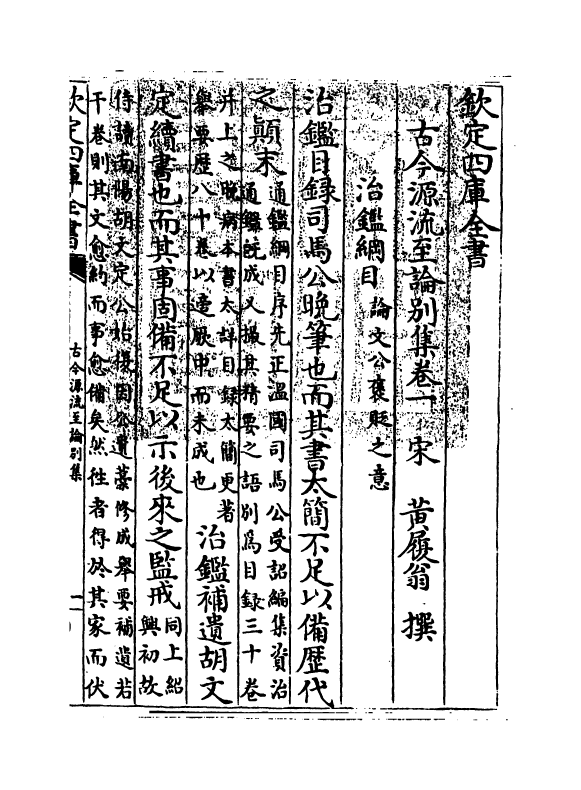 欽定四庫全書
古今源流至論別集卷一 宋 黃履翁 撰
治鑑綱目 論文公褒貶之意
治鑑目録司馬公晚筆也而其書太簡不足以備歴代
之顛末 通鑑綱目序先正溫國司馬公受詔編集資治
通鑑既成又撮其精要之語別爲目録三十卷
并上之晚病本書太詳目録太簡更著
舉要歴八十卷以適厥中而未成也
治鑑補遺胡文
定續書也而其事固備不足以示後來之監戒 同上紹
興初故
侍讀南陽胡文定公始復因公遺藁修成舉要補遺若
干卷則其文愈約而事愈備矣然徃者得於其家而伏
欽定四庫全書
古今源流至論別集
一